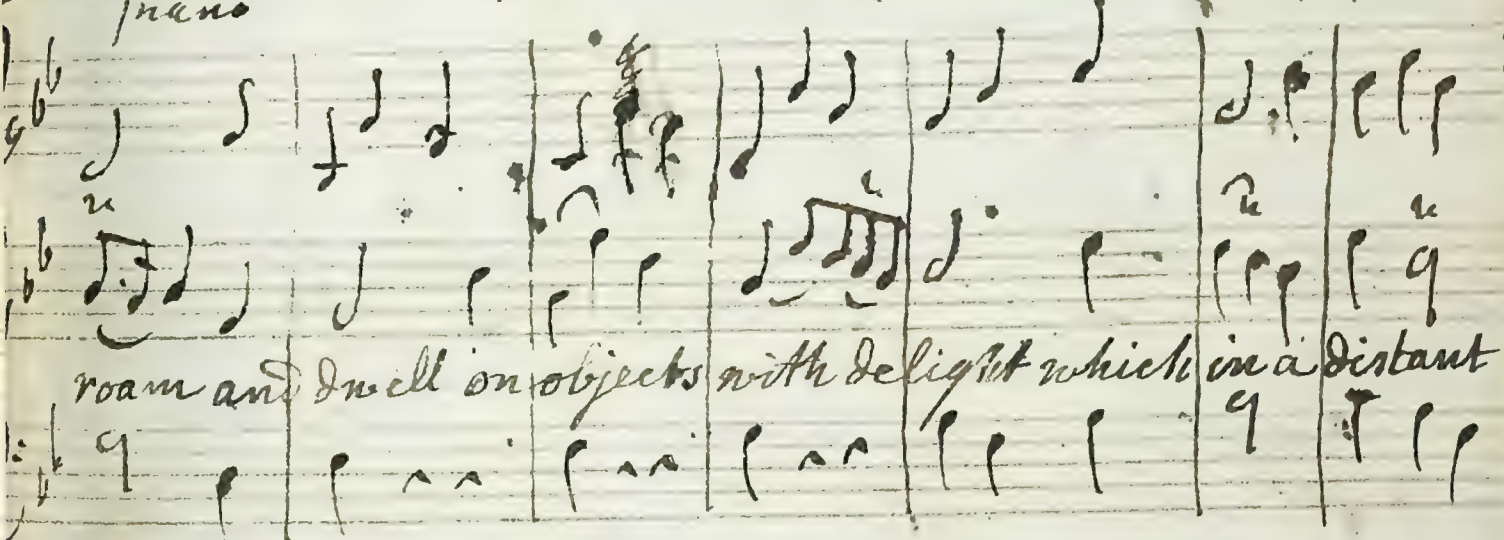 piano
roam and dwell on objects with delight which in a distant